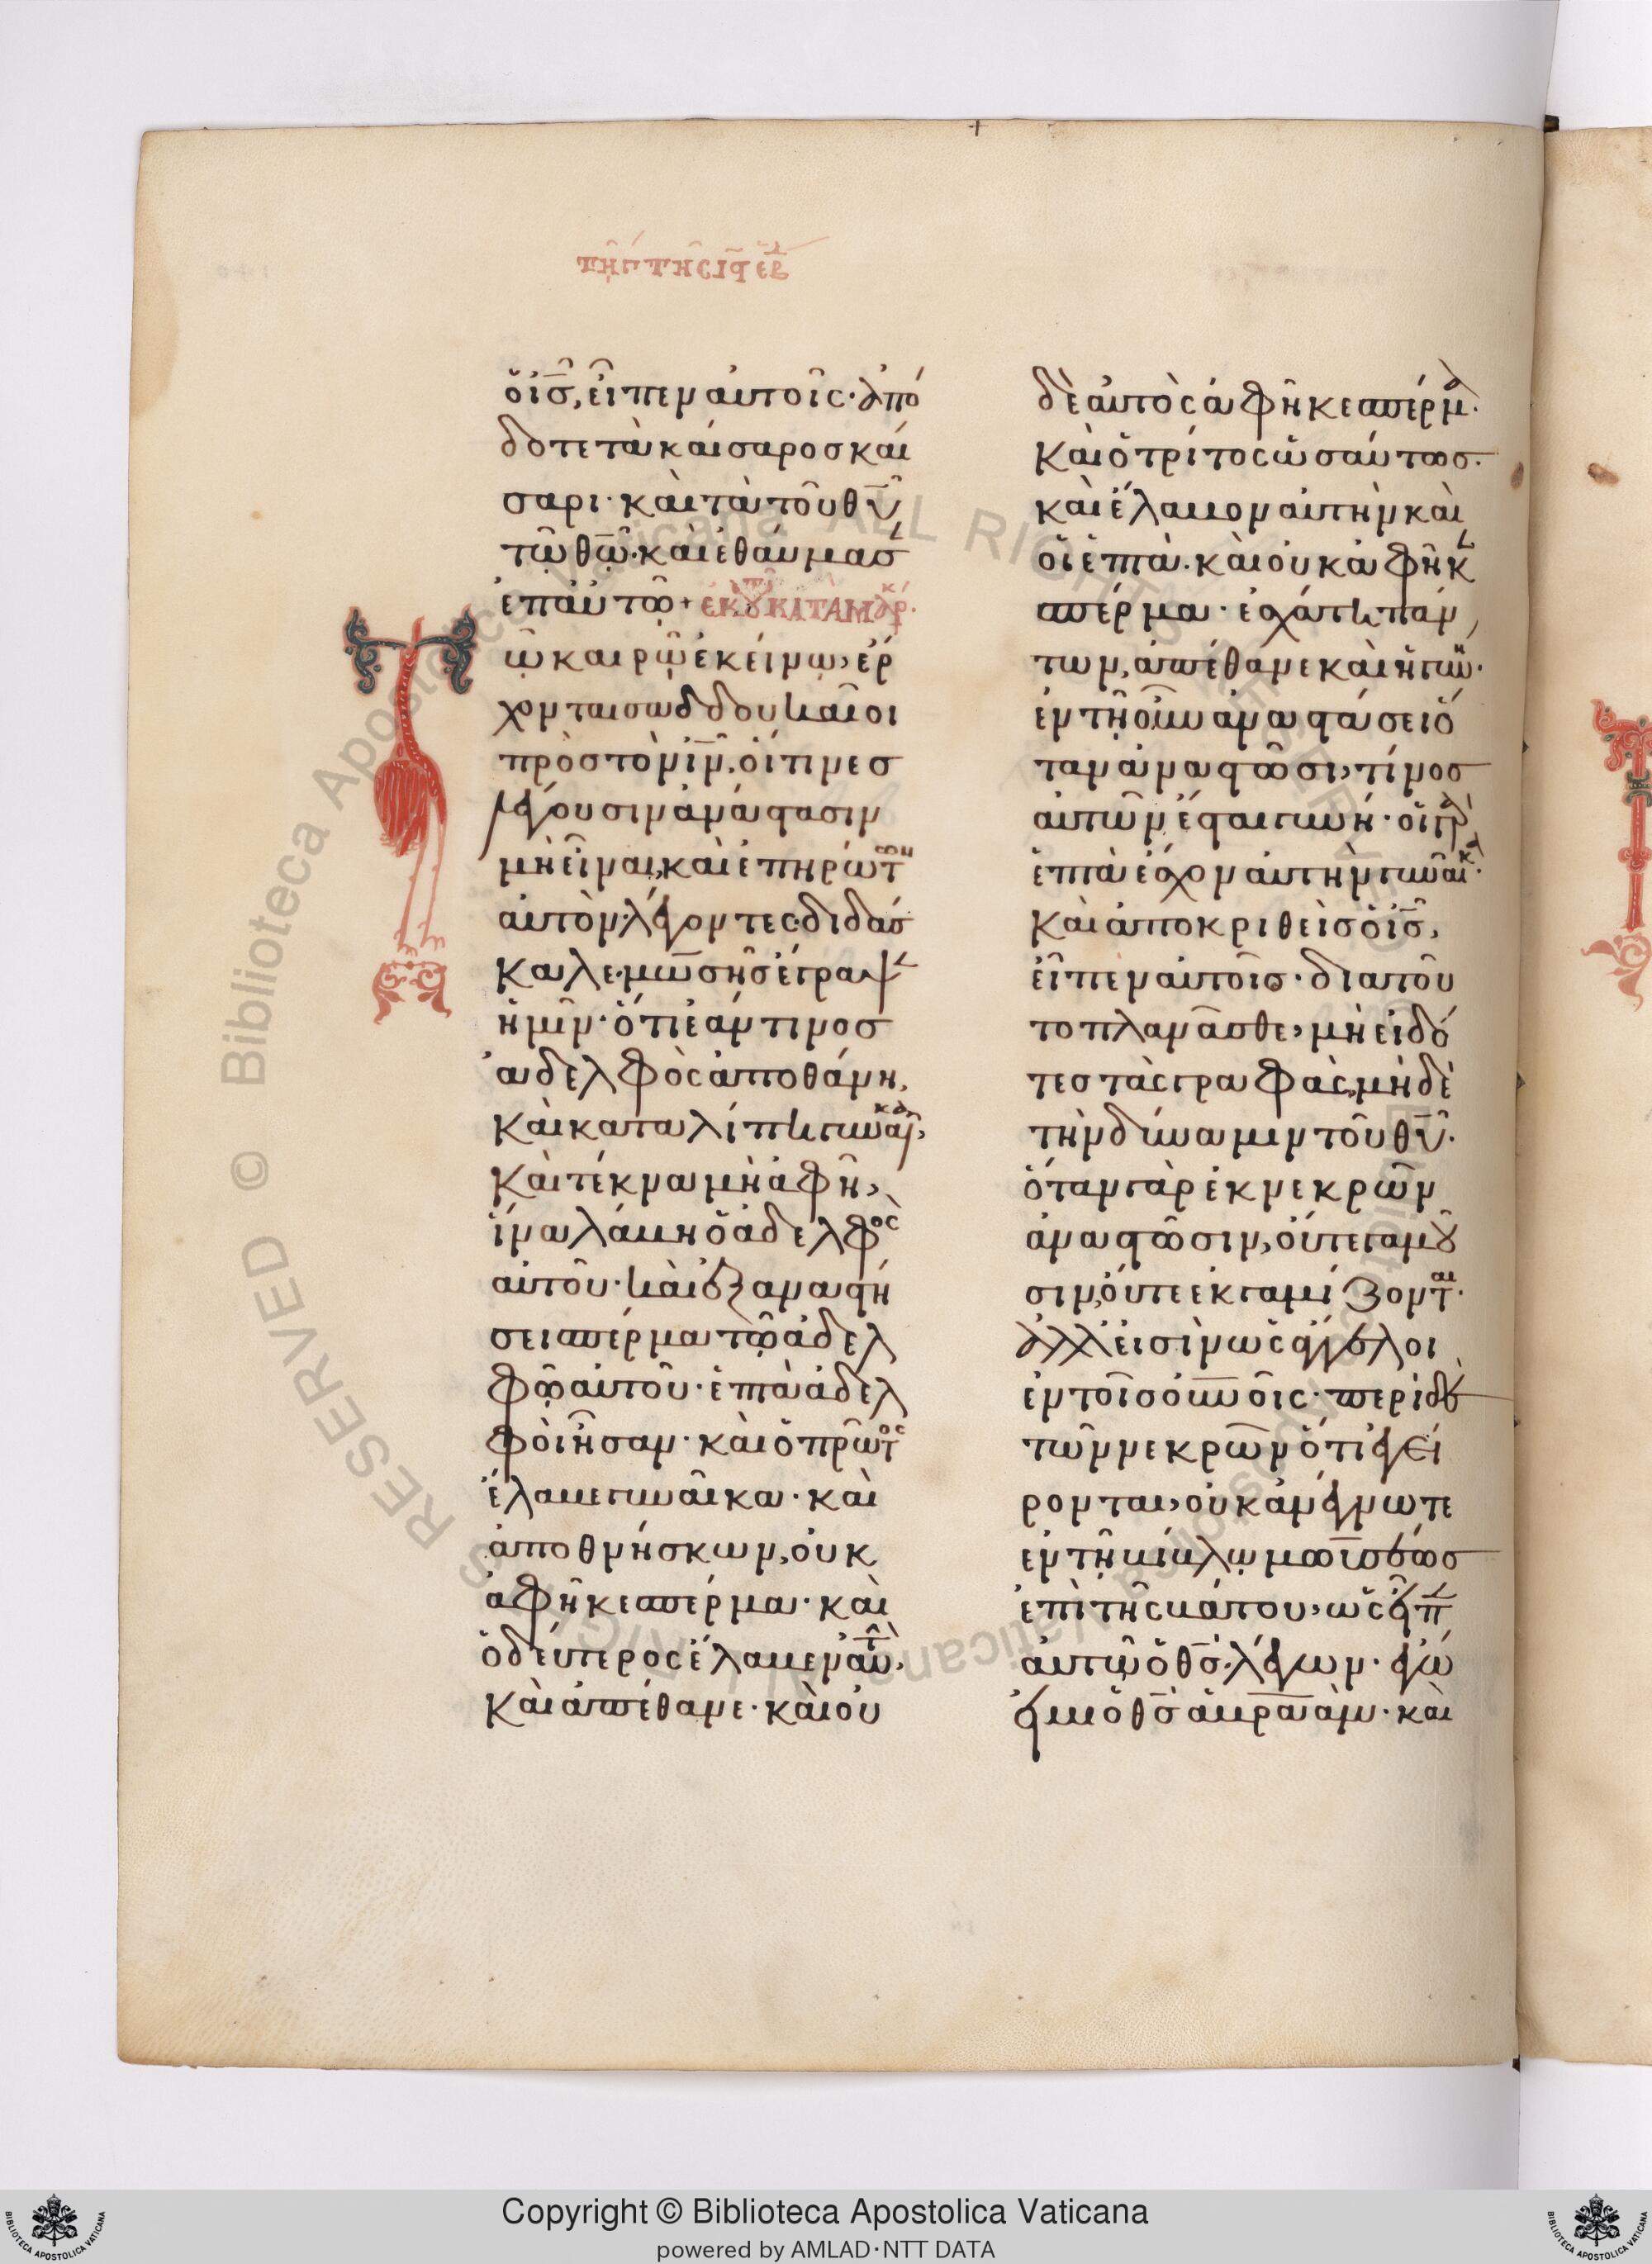 τῆ γ̄ τῆς ιβ ἑβδ
ὁ ἰς̅, εἶπεν αὐτοῖς· ἀπό
δοτε τὰ καίσαρος καί
σαρι· καὶ τὰ τοῦ θῡ
τῶ θω̅· καὶ ἐθαύμασ
ἐπ αὐτῶ + ἐκ τοῦ κατὰ μάρκ·
Τῶ καιρῶ ἐκείνω, ἔρ
χονται σαδδουκαῖοι
πρὸς τὸν ιν̅, οἵτινες
λέγουσιν ἀνάστασιν
μὴ εἶναι, καὶ ἐπηρώτων
αὐτὸν λέγοντες· διδάσ
καλε· μωσῆς ἔγραψ
ἡμῖν· ὅτι ἐάν τινος
ἀδελφὸς ἀποθάνη,
καὶ καταλίπει γυναῖκα,
καὶ τέκνα μὴ ἀφῆ,
ἵνα λάβη ὁ ἀδελφὸς
αὐτοῦ· καὶ ἐξαναστή
σει σπέρμα τῶ ἀδελ
φῶ αὐτοῦ· ἑπτὰ ἀδελ
φοὶ ἦσαν· καὶ ὁ πρῶτος
ἔλαβε γυναῖκα· καὶ
ἀποθνήσκων, οὐκ
ἀφῆκε σπέρμα· καὶ
ὁ δεύτερος ἔλαβεν αὐτὴν,
καὶ ἀπέθανε· καὶ οὐ
δὲ αὐτὸς ἀφῆκε σπέρμα·
καὶ ὁ τρίτος ὡσαύτως·
καὶ ἔλαβον αὐτὴν καὶ
οἱ ἑπτά· καὶ οὐκ ἀφῆκ
σπέρμα· ἐσχάτη πάν
των, ἀπέθανε καὶ ἡ γυνή·
ἐν τῆ οὖν ἀναστάσει ὅ
ταν ἀναστῶσι, τίνος
αὐτῶν ἔσται γυνή· οἱ γὰρ
ἑπτὰ ἔσχον αὐτὴν γυναῖκα·
καὶ ἀποκριθεὶς ὁ ἰς̅,
εἶπεν αὐτοῖς· διὰ τοῦ
το πλανᾶσθε, μὴ εἰδό
τες τὰς γραφὰς, μηδὲ
τὴν δύναμιν τοῦ θῡ·
ὅταν γὰρ ἐκ νεκρῶν
ἀναστῶσιν, οὔτε γαμοῦ
σιν, οὔτε ἐκγαμίζονται·
ἀλλ εἰσὶν ὡς ἄγγελοι
ἐν τοῖς οὐνοῖς· περὶ δὲ
τῶν νεκρῶν ὅτι ἐγεί
ρονται, οὐκ ἀνέγνωτε
ἐν τῆ βίβλω μωϋσέως
ἐπὶ τῆς βάτου, ὡς εἶπ
αὐτῶ ὁ θς̅· λέγων· ἐγώ
εἰμι ὁ θς̅ ἀβραάμ· καὶ
Copyright © Biblioteca Apostolica Vaticana
powered by AMLAD·NTT DATA